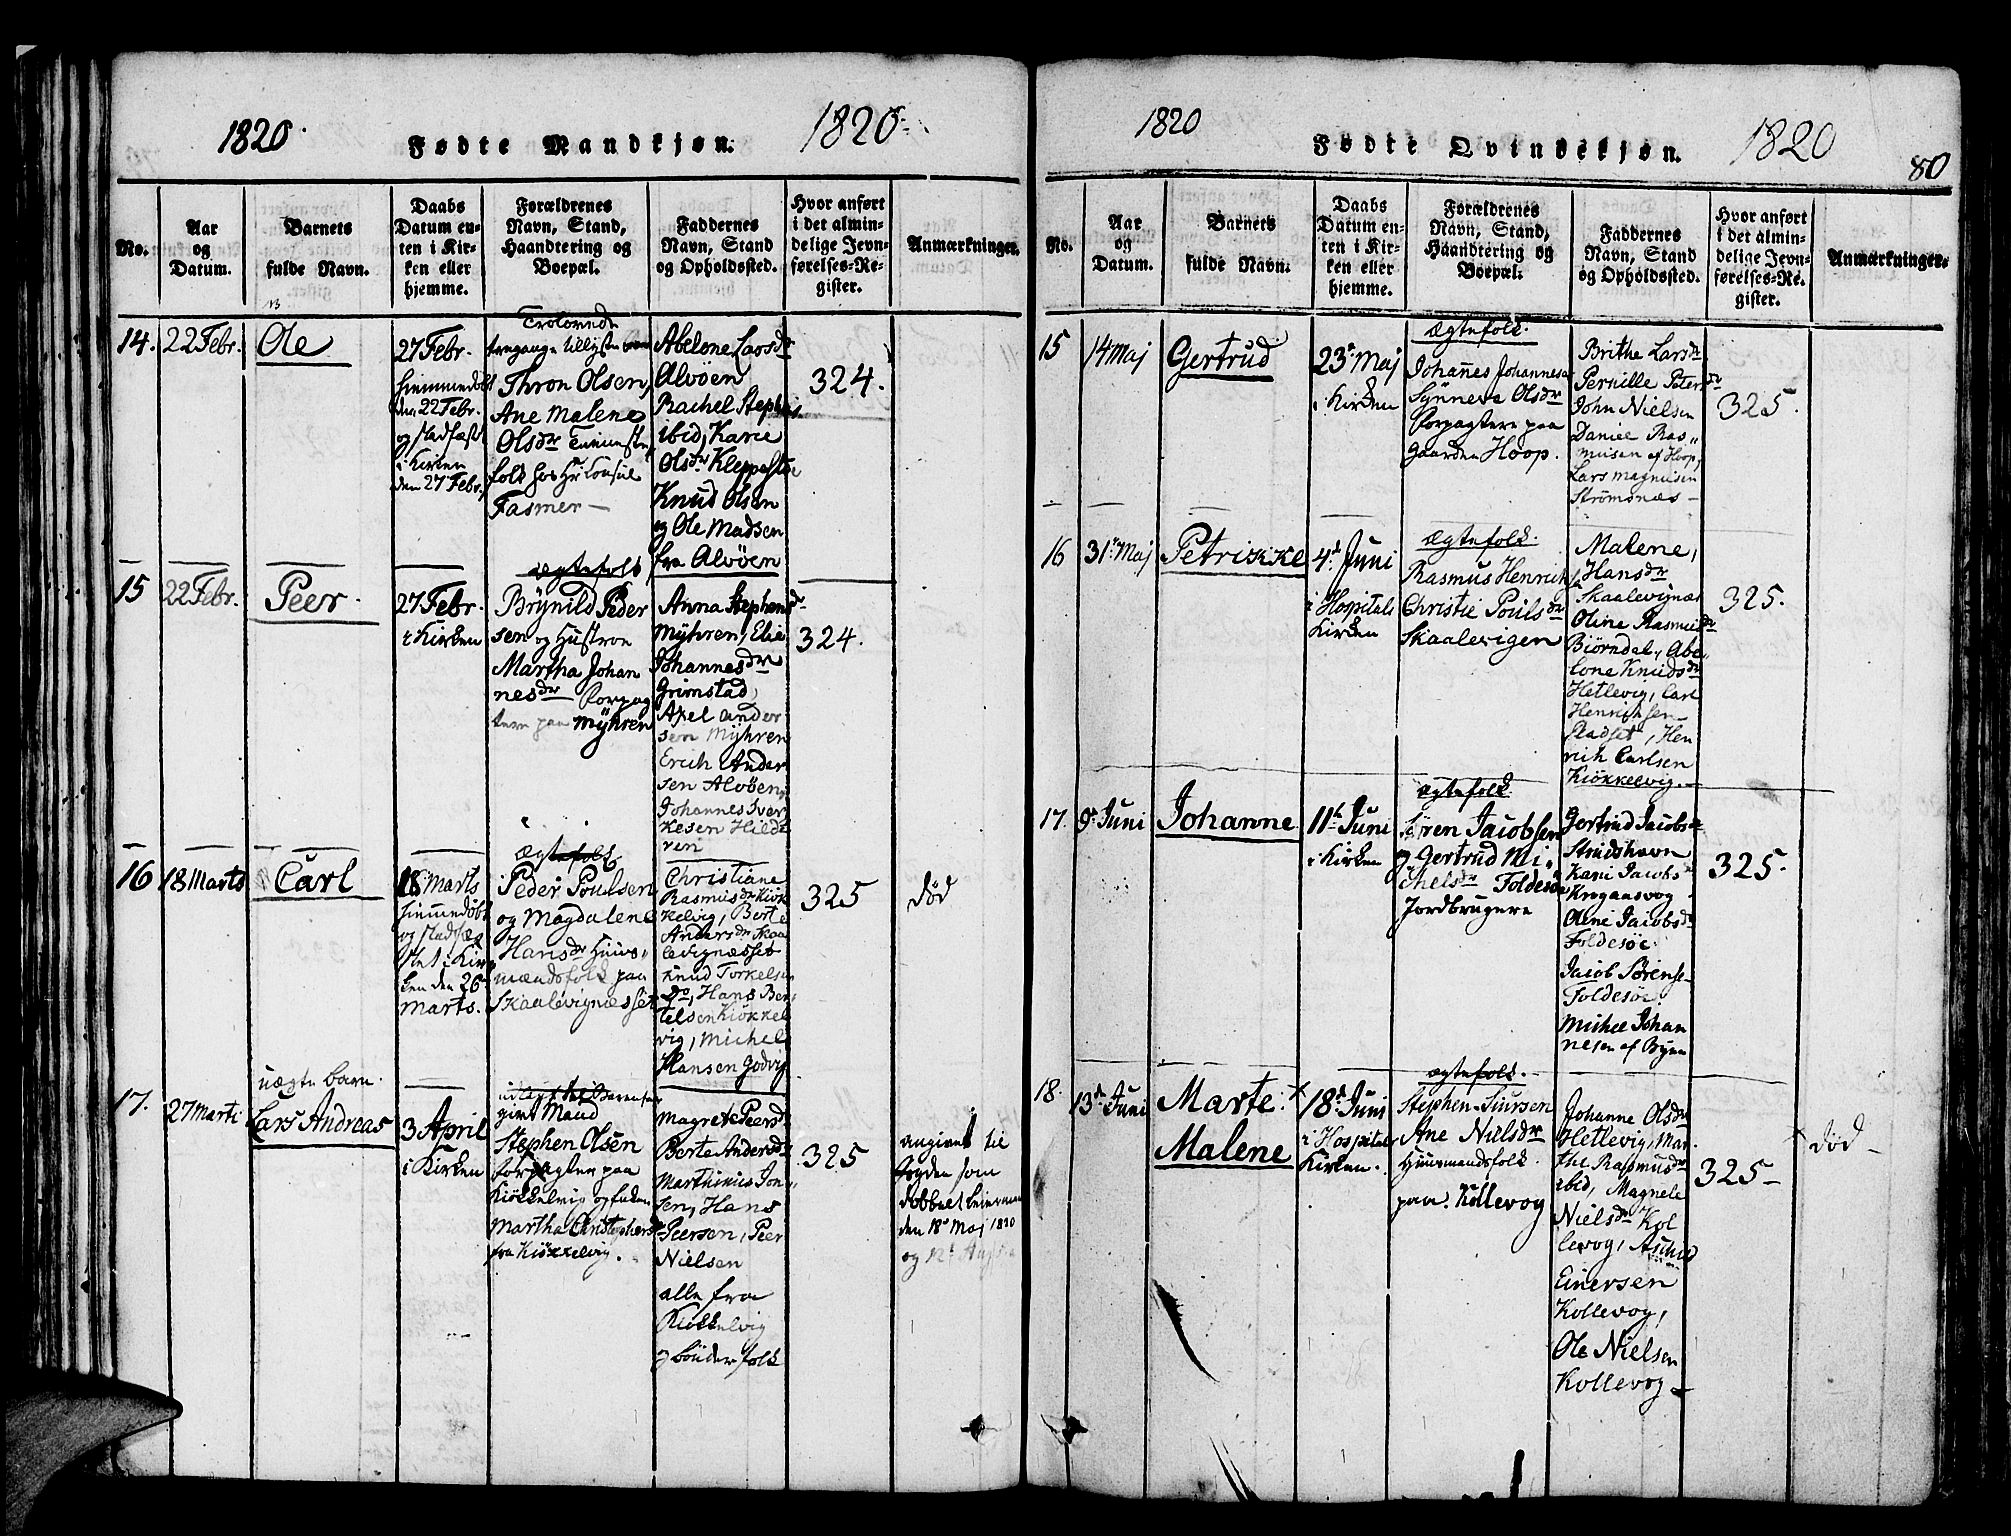 1820.
Fødte Mandkjøn.
1820.
No.
Aar
og
Datum.
Barnets
fulde Navn.
Daabs
Datum en-
ten i Kir-
ken eller
hjemme.
Forældrenes
Navn, Stand,
Haandtering og
Boepæl.
Faddernes
Navn, Stand
og Opholdssted.
Hvor anført
i det almin-
delige Jevn-
førelses-Re-
gister.
Anmærkninger.
14.
22 Febr.
Ole
27 Febr.
hiemmedøbt
den 22 Febr.
og stadfæst
i Kirken
den 27 Febr.
Trolovede
Thron Olsen,
Ane Malene
Olsdr Tieneste
folk hos Hr Consul
Fasmer —
Abelone Larsdr
Alvøen,
Rachel Stephens
ibid, Karie
Olsdr Kleppestøe
Knud Olsen
og Ole Madsen
fra Alvöen
324.
15
22 Febr.
Peer.
27 Febr.
i Kirken
ægtefolk
Brÿnild Peder
sen og Hustroe
Martha Johan
nesdr Forpag
tere paa Mÿhren
Anna Stephensdr
Mÿhren, Elie
Johannesdr
Grimstad,
Axel Ander
sen Mÿhren
Erich Ander
sen Alvöen,
Johannes Iver
kesen Hild
ren
324.
16
18 Marts
Carl
18 Marts
hiemmedøbt
og stadfæ
stet i Kir
ken den 26
Marts.
Ægtefolk
Peder Poulsen
og Magdalene
Hansdr Huus-
mandsfolk paa
Skaalevignæsset
Christiane
Rasmusdr Kiøk
kelvig, Berte
Andersdr Skaa
levignæsset
Knud Torkelsen
Do, Hans Ber
telsen Kiøkkel
vig, Michel
Hansen Godvig
325
død
17.
27 Marti
uægte barn.
Lars Andreas
3 April
i Kirken
givt Mand
Stephen Olsen
forpagter paa
Kiøkkelvig og
Martha Christophersdr
fra Kiøkkelvig.
Magrete Peersdr
Berte Andersdr
Marthinus Jon-
sen, Hans
Peersen, Peer
Nielsen
alle fra
Kiøkkelvig
og bönderfolk
325
angivet til
fogden som
dobbelt
den 18de Maj 1820
og 12t
1820
Fødte Qvindekjøn.
1820
80
No.
Aar
og
Datum.
Barnets
fulde Navn.
Daabs
Datum en-
ten i Kir-
ken eller
hjemme.
Forældrenes
Navn, Stand,
Haandtering og
Boepæl.
Faddernes
Navn, Stand
og Opholdssted.
Hvor anført
i det almin-
delige Jevn-
førelses-Re-
gister.
Anmærkninger.
15
14 Maj
Gertrud
23. Maj
i Kirken
Ægtefolk.
Johañes Johannesen
Sÿnneva Olsdr
Forpagtere paa
gaarden Hoop.
Brithe Larsdr
Pernille Petersdr
John Nielsen
Daniel Ras-
musen af Hoop,
Lars Magnusen
Strömsnæs —
325.
16
31. Maj
Petrikke
4d Juni
i Hospitals
Kirken
Ægtefolk.
Rasmus Henriks
Christie Poulsdr
Skaalevigen
Malene,
Hansdr
Skaalevignæs
Oline Rasmusdr
Biørndal, Abe
lone Knudsdr
Hetlevig, Carl
Henrichsen
Stadset, Hen
rich Carlsen
Kiøkkelvig.—
325.
17.
9. Juni
Johanne
11t Juni
i Kirken
ægtefolk.
Sören Jacobsen
og Gertrud Mi-
chelsdr Foldesöe
Jordbrugere
Gertrud Jacobsdr
Strudshavn
Kari Jacobsdr
Krogaasvog
Oline Jacobsdr
Foldesöe
Jacob Sörense
Foldesöe,
Michel Johan
nesen af Bÿen
325.
18.
13d Juni
Marte
Malene
18d Juni
i Hospitals
Kirken.
ægtefolk.
Stephen Siursen
Ane Nielsdr
Huusmandsfolk
paa Kollevog
Johanne Olsdr
Hetlevig, Mar-
the Rasmusdr
ibid, Magnele
Nielsdr Kol
levog,
Einersen
Kollevog,
Ole Nielsen
Kollevog —
325 —
død —